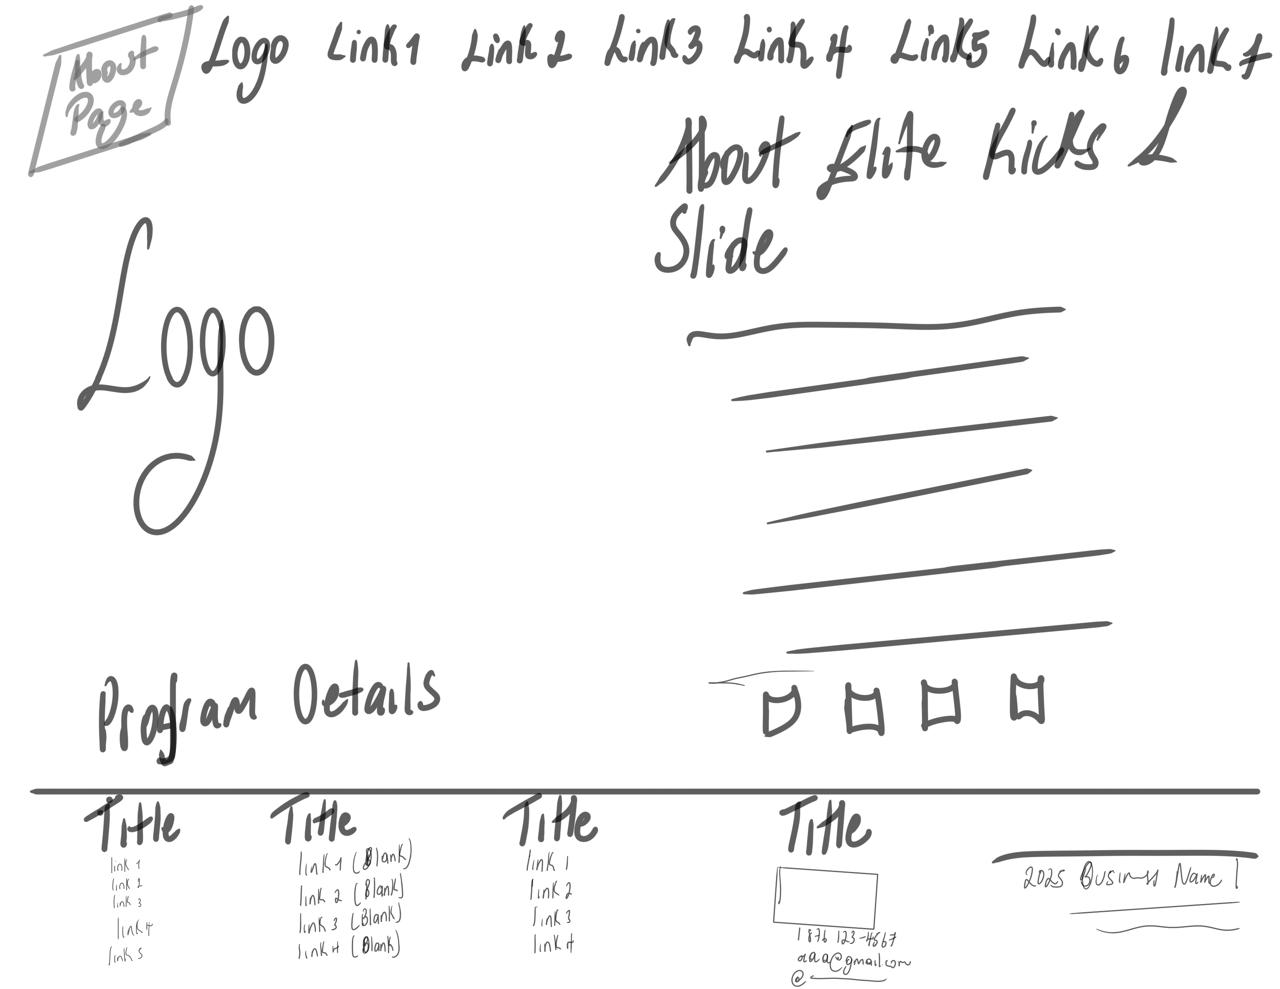 About
Page
Logo Link 1 Link 2 Link 3 Link 4 Link 5 Link 6 link 7
About Elite Kicks &
Slide
Logo
Program Details
Title
link 1
link 2
link 3
link 4
link 5
Title
link 1 (Blank)
link 2 (Blank)
link 3 (Blank)
link 4 (Blank)
Title
link 1
link 2
link 3
link 4
Title
1 876 123-4567
aaa@gmail.com
@
2025 Business Name |